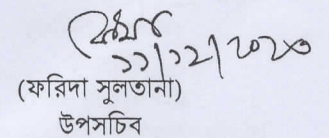 ১১/১২/২০২৩
(ফরিদা সুলতানা)
উপসচিব